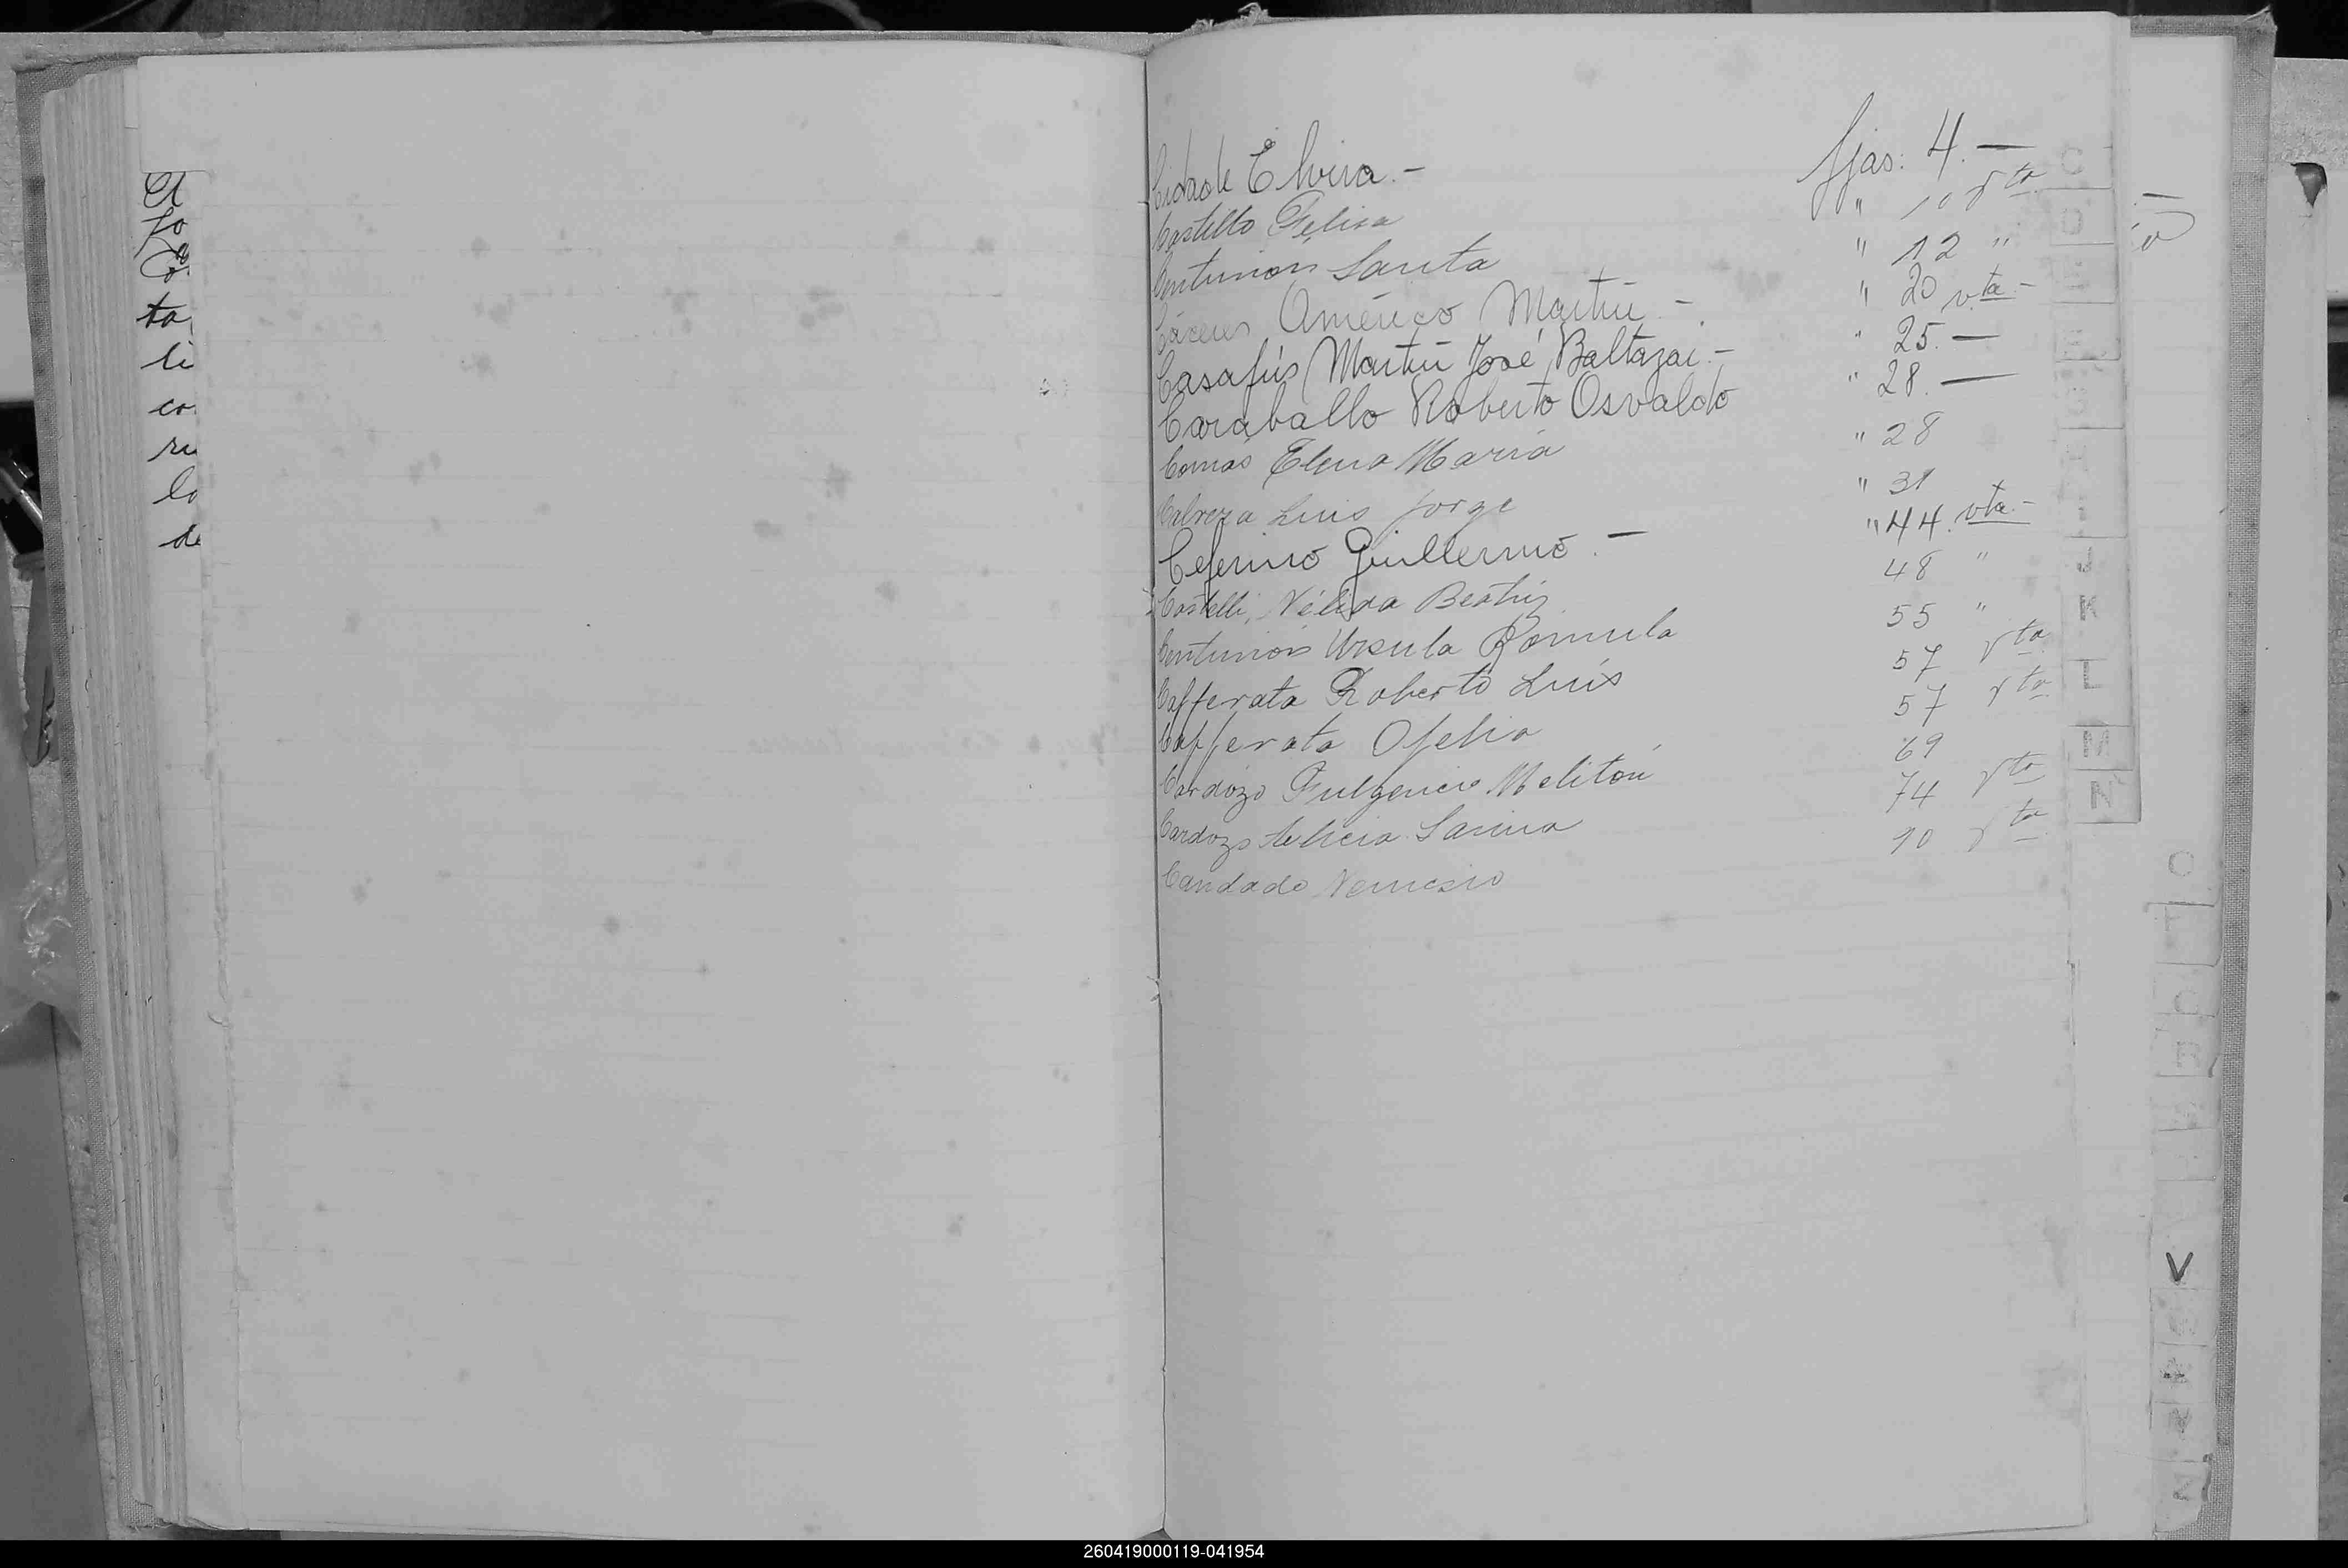 Cidade Elvira.- fjas: 4.-
Castillo Felisa " 10 vta
Centurion Santa " 12 "
Cáceres Américo Martín.- " 20 vta.-
Casafús Martín José Baltazar.- " 25.-
Caraballo Roberto Osvaldo " 28.-
Comas Elena Maria " 28
Cabrera Luis Jorge " 31
Ceferino Guillermo.- " 44. vta.-
Castelli, Nélida Beatriz 48 "
Centurion Ursula Romula 55 "
Cafferata Roberto Luis 57 vta
Cafferata Ofelia 57 vta
Cardozo Fulgencio Meliton 69
Cardozo Felicia Sarina 74 vta
Candado Nemesio 10 vta
ta
li
co
ru
la
de
C
D
J
K
L
M
N
O
R
V
Z
260419000119-041954